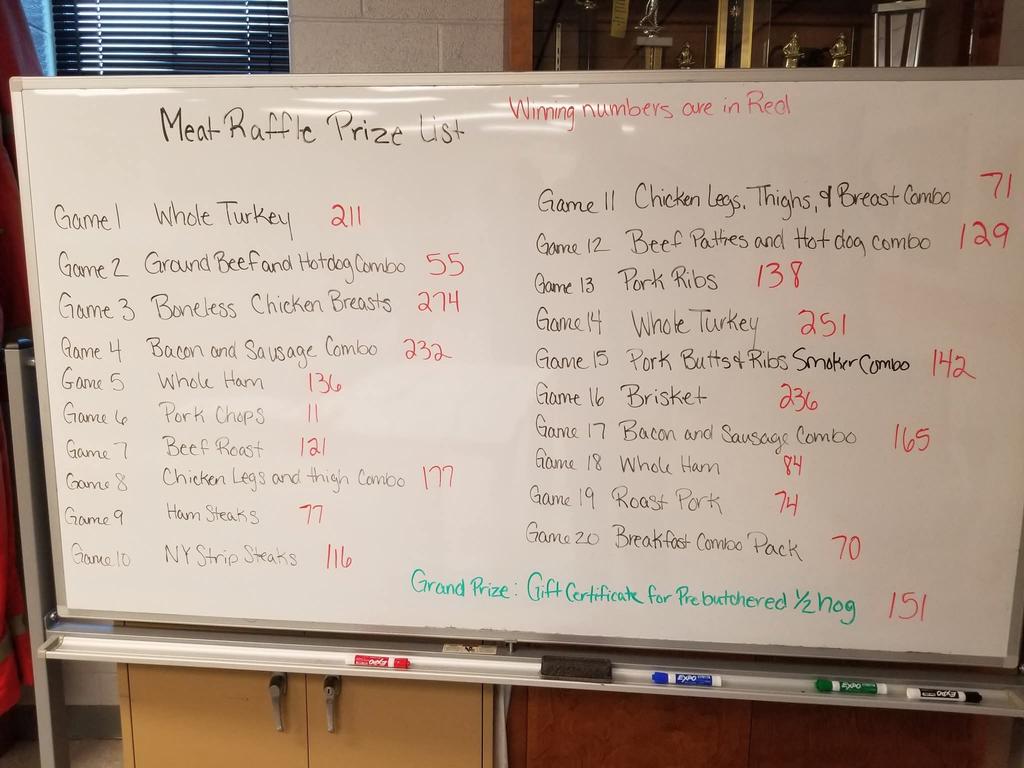 Meat Raffle Prize List
Winning numbers are in Red
Game 1 Whole Turkey 211
Game 2 Ground Beef and Hotdog Combo 55
Game 3 Boneless Chicken Breasts 274
Game 4 Bacon and Sausage Combo 232
Game 5 Whole Ham 136
Game 6 Pork Chops 11
Game 7 Beef Roast 121
Game 8 Chicken Legs and thigh Combo 177
Game 9 Ham Steaks 77
Game 10 NY Strip Steaks 116
Game 11 Chicken Legs, Thighs, & Breast Combo 71
Game 12 Beef Patties and Hot dog combo 129
Game 13 Pork Ribs 138
Game 14 Whole Turkey 251
Game 15 Pork Butts & Ribs Smoker Combo 142
Game 16 Brisket 236
Game 17 Bacon and Sausage Combo 165
Game 18 Whole Ham 84
Game 19 Roast Pork 74
Game 20 Breakfast Combo Pack 70
Grand Prize: Gift Certificate for Prebutchered 1/2 hog 151
EXPO
EXPO
EXPO
EXPO